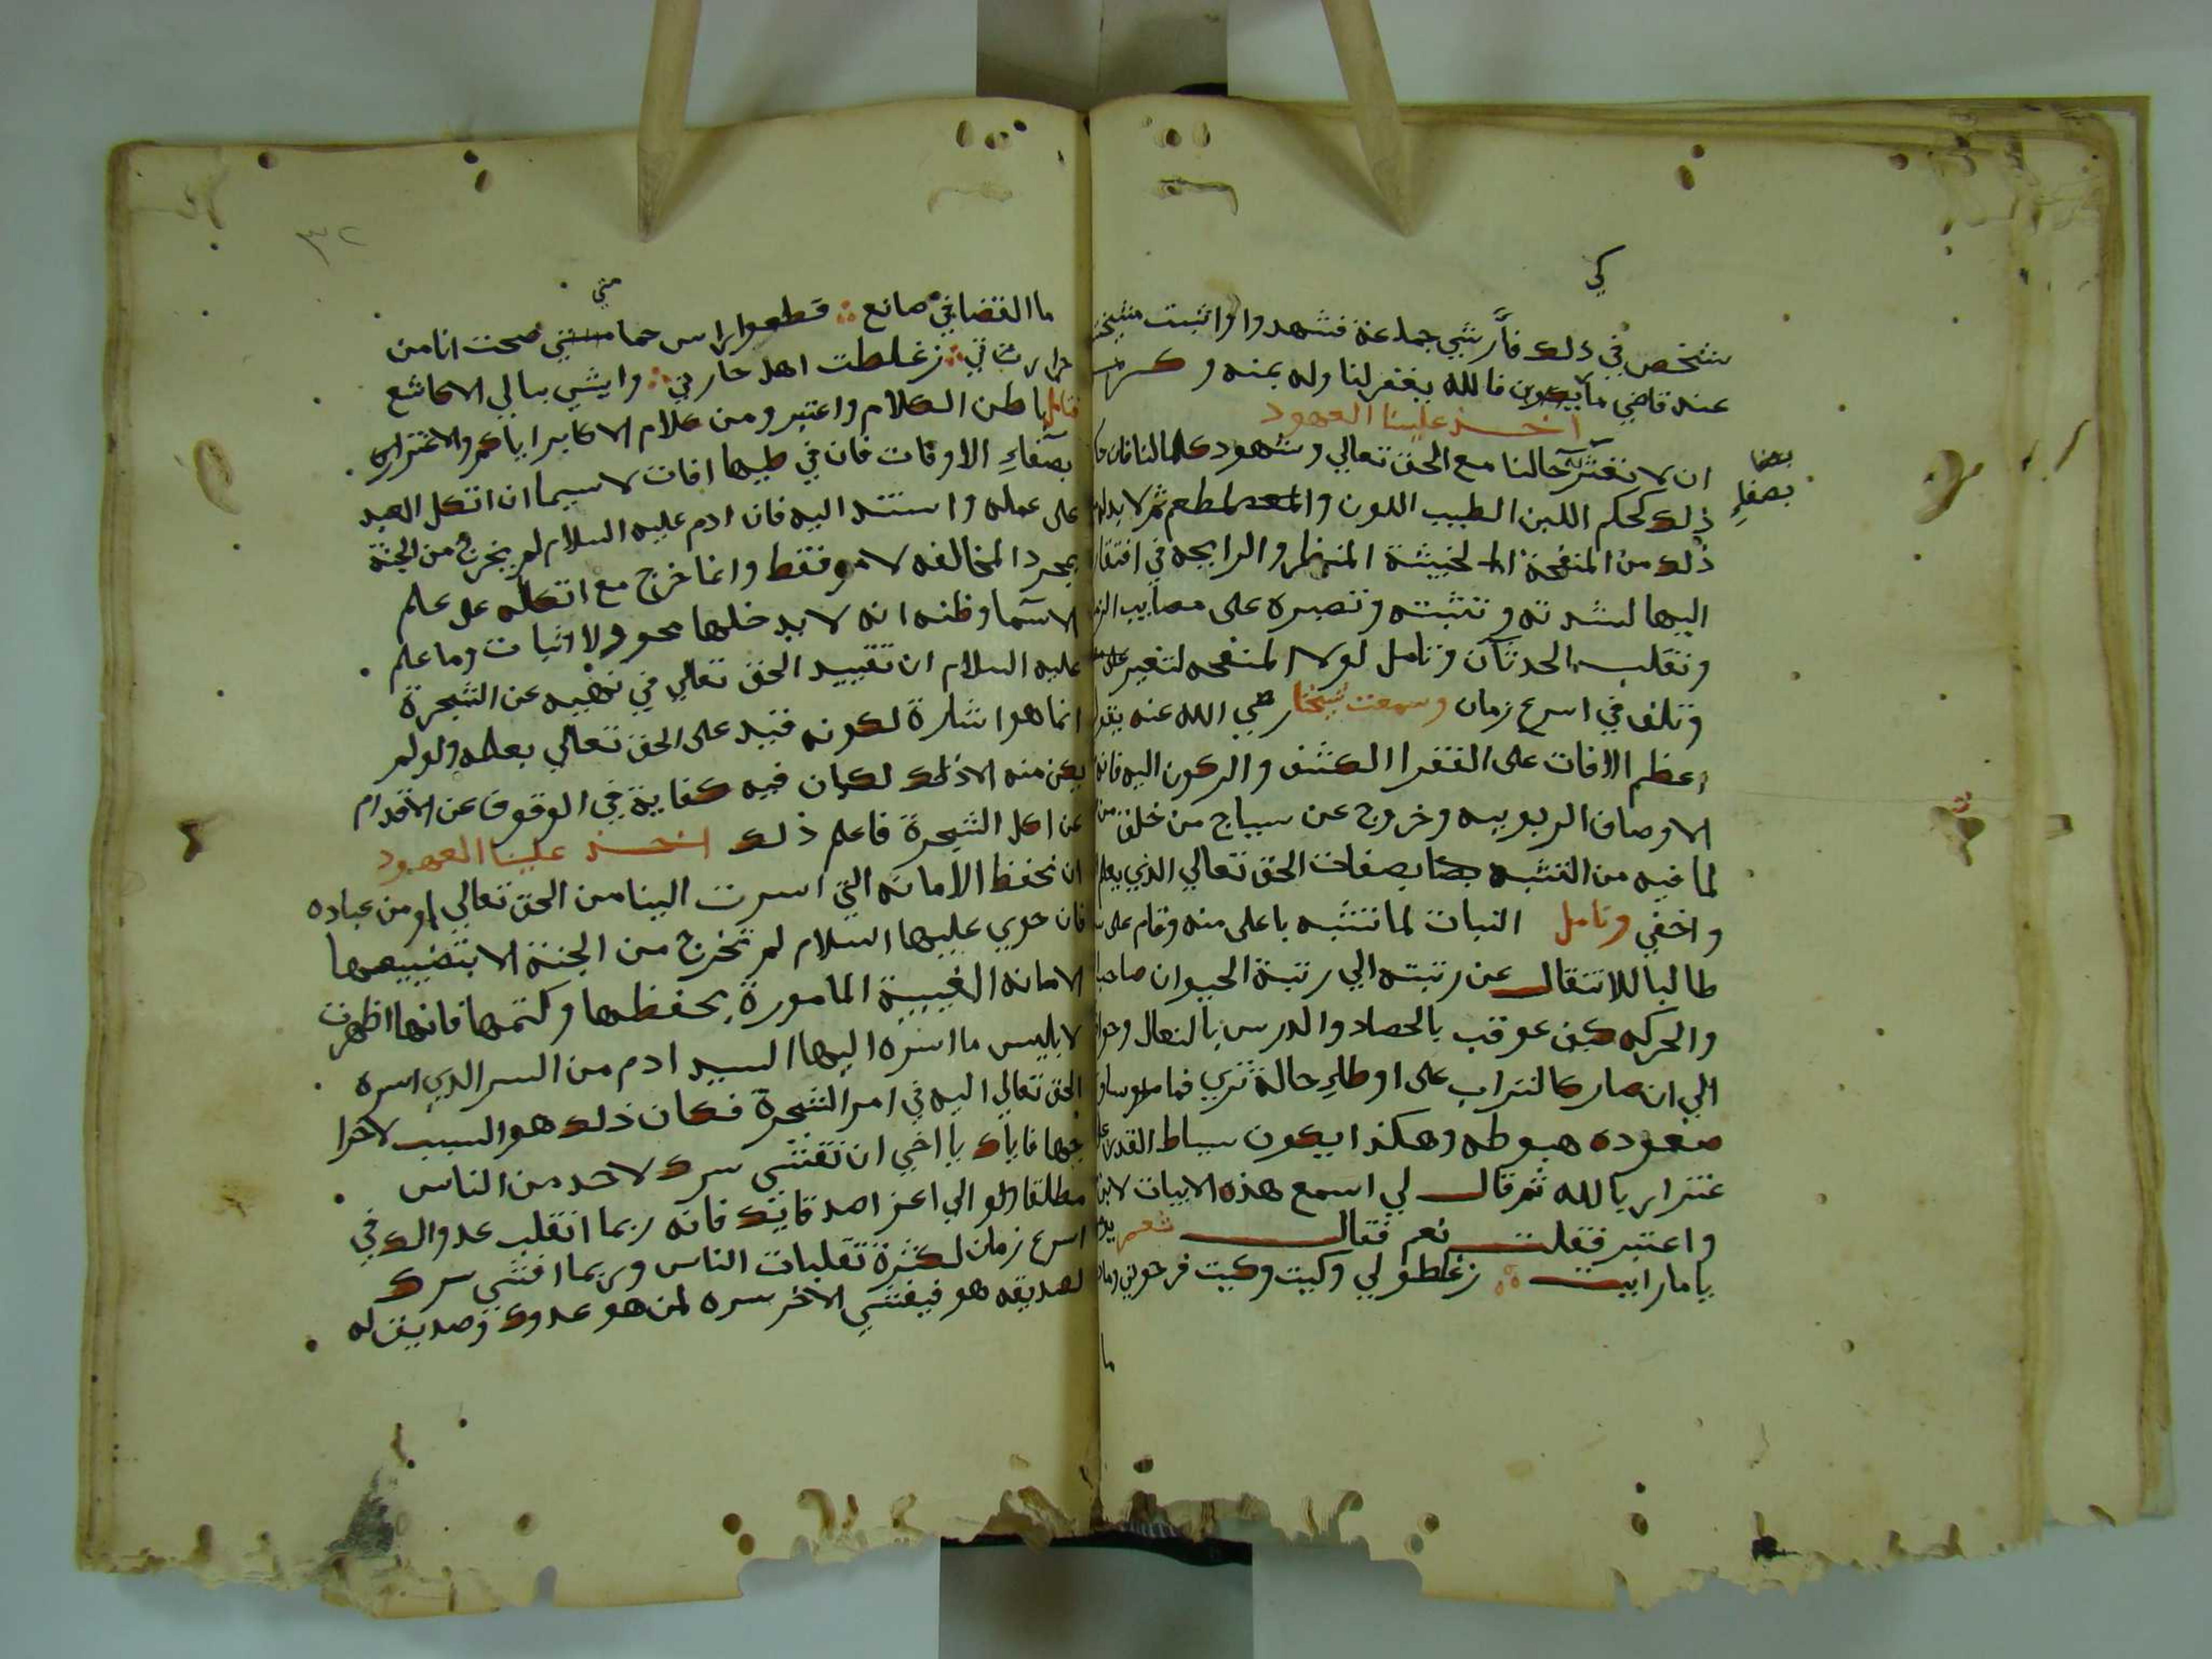 كي
شخص في ذلك فأرشي جماعة فشهدوا واثبت مشيخته
عند قاضي ما يكون فالله يغفر لنا وله بمنه وكرمه
اخذ علينا العهود
ان لا نغتر حالنا مع الحق تعالي وشهود كمالنا فان
بصفا
بصفاءِ
ذلك كحكم اللبن الطيب اللون والمطعم ثم لا بد له
ذلك من المنفحة الخبيثة المنظر والرايحه في افتقار
اليها لشدته وتثبته وتصبره على مصايب الز
وتقلب الحدثان وتامل لولا المنفحه لتغير
وتلف في اسرع زمان وسمعت شيخنا رضي الله عنه يقول
اعظم الافات على الفقرا الكشف والركون اليه فانه
الاوصاف الربوبيه وخروج عن سياج من خلق من
لما فيه من التشبه بصفات الحق تعالي الذي يعلم
واخفي وتامل النبات لما تشبه باعلى منه وقام على
طالبا للانتقال عن رتبته الي رتبة الحيوان صاحب
والحركه كيف عوقب بالحصاد والدرس بالنعال
الي ان صار كالتراب على اوطاءِ حالة تري فما
صعوده هبوطه وهكذا يكون سياط القدر
غترار بالله ثم قال لي اسمع هذه الابيات
واعتبر فقلت نعم فقال شعر
يا ما رايت زغلطو لي وكيت وكيت فرحوني
ما
٣٢
ما القضا في صانع قطعوا راس حمامتي صحت انا من
مني
حرارتي زغلطت اهل حارتي وايش بالي الا كاشع
فتامل باطن الكلام واعتبر ومن كلام الاكابر اياكم والاغترار
بصفاءِ الاوقات فان في طيها افات لا سيما ان اتكل العبد
على عمله واستند اليه فان ادم عليه السلام لم يخرج من الجنة
بمجرد المخالفه لامر فقط وانما خرج مع اتكاله على علم
الاسما وظنه انه لا يدخلها محو ولا اثبات وما علم
عليه السلام ان تقييد الحق تعالي في نهيه عن الشجرة
انما هو اشارة لكونه قيد على الحق تعالي بعلمه ولو لم
يكن منه الا ذلك لكان فيه كفاية في الوقوف عن الاقدام
عن اكل الشجرة فاعلم ذلك اخذ علينا العهود
ان نحفظ الامانه التي اسرت الينا من الحق تعالي او من عباده
فان حوي عليها السلام لم تخرج من الجنة الا بتضييعها
الامانه الغيبية المامورة بحفظها وكتمها فانها اظهرت
لابليس ما اسره اليها السيد ادم من السر الذي اسره
الحق تعالي اليه في امر الشجرة فكان ذلك هو السبب لاخرا
جها فاياك يا اخي ان تفشي سرك لاحد من الناس
مطلقا ولو الي اعز اصدقايك فانه ربما انقلب عدوا لك في
اسرع زمان لكثرة تقلبات الناس وربما افشي سرك
لصديقه هو فيفشي الاخر سره لمن هو عدوك وصديق له